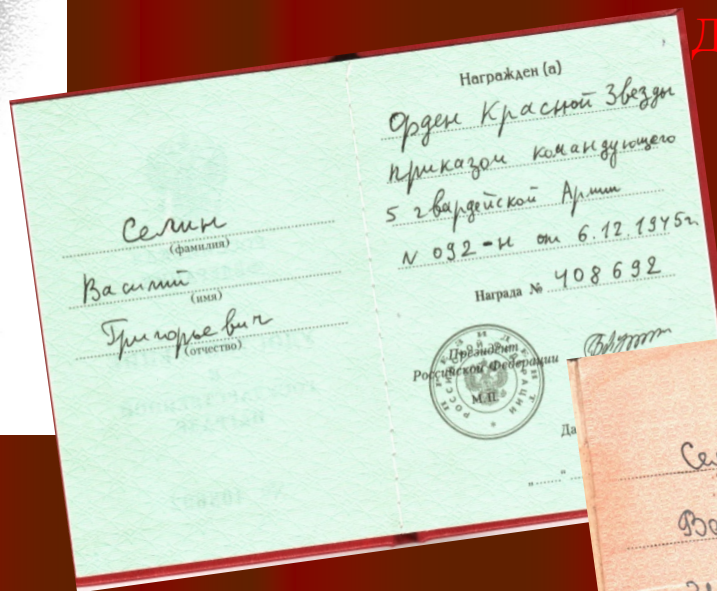 Д
Селин
(фамилия)
Василий
(имя)
Григорьевич
(отчество)
Награжден (а)
Орден Красной Звезды
приказом командующего
5 гвардейской Армии
N 092-н от 6.12.1945г
Награда № 408692
Президент
Российской Федерации
М.П.
Да
"......"
Се
Ва